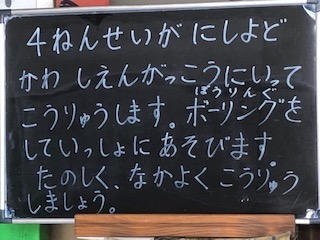 4ねんせいが にしよど
かわ しえんがっこうにいって
こうりゅうします。ボーリングを
ぼうりんぐ
していっしょに あそびます。
たのしく、なかよく こうりゅう
しましょう。